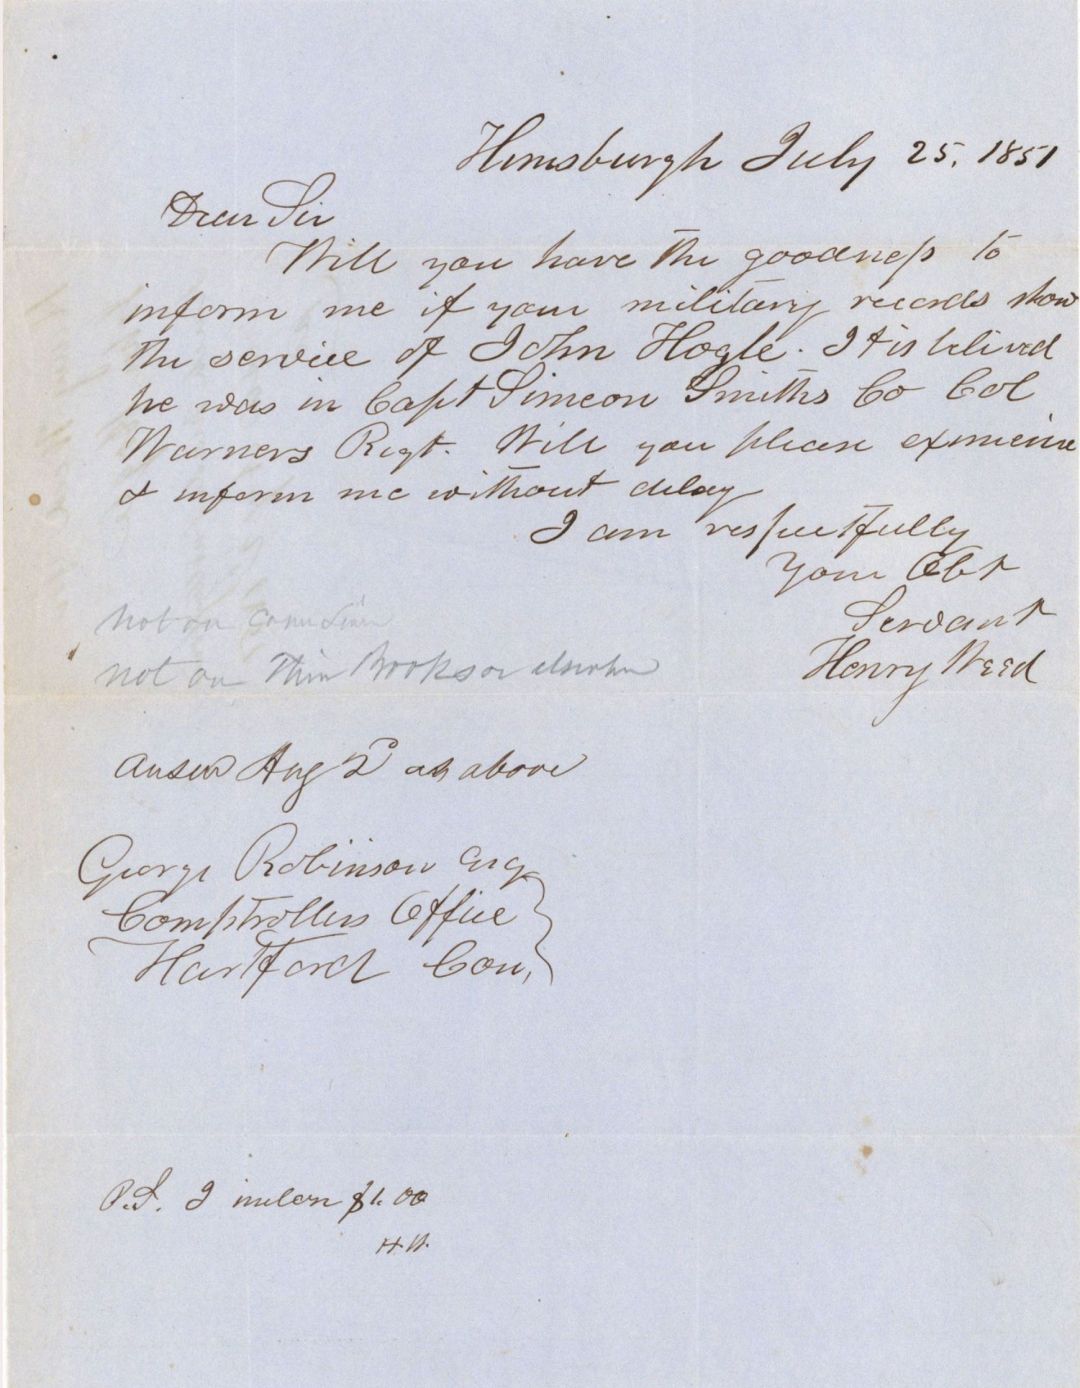 July 25, 1851
Dear Sir
Will you have the goodness to
inform me if your military records show
the service of John Hogle. It is belived
he was in Capt Simeon Smiths Co Col
Warners Regt. Will you please
& inform me without delay
I am respectfully
Your Obt
Servant
Henry Weed
not on
not on Books or
Aug 2d as above
George Robinson Esq
Comptrollers Office
Hartford Con,
P.S. I inclose $1.00
H.W.